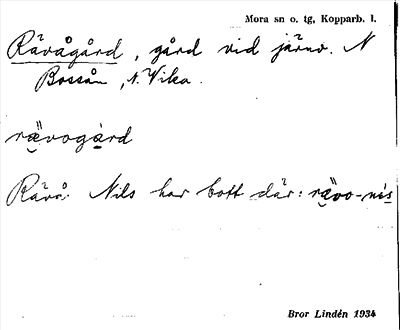 Mora sn o. tg, Kopparb. l.
Rävågård, gård vid järnv. N
Bossån, N. Vika.
rävogård
Rävå Nils har bott där: rävo-nis
Bror Lindén 1934